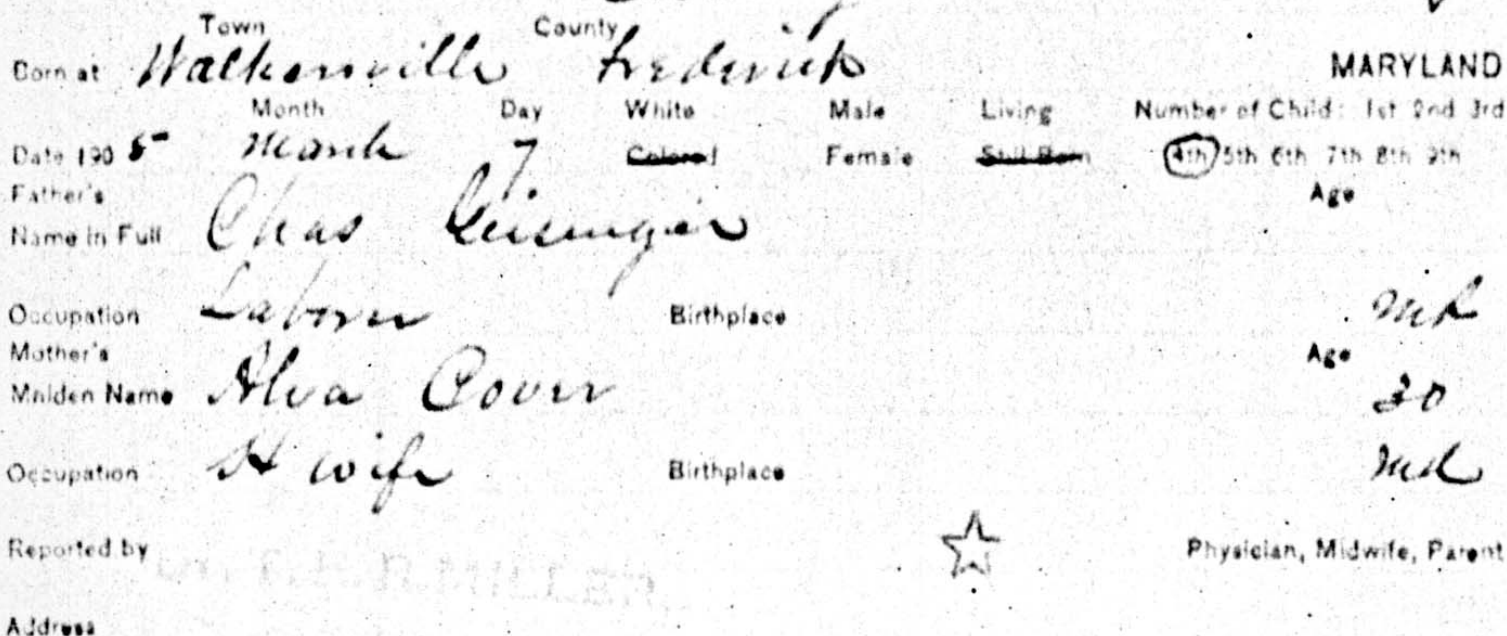 Town County
Born at Walkersville Frederick MARYLAND
Month Day White Male Living Number of Child: 1st 2nd 3rd
Date 190 5 March 7 Colored Female Still Born 4th 5th 6th 7th 8th 9th
Father's Age
Name in Full Chas Geisinger
Occupation Laborer Birthplace Md
Mother's Age
Maiden Name Alva Cover 30
Occupation H wife Birthplace Md
Reported by Physician, Midwife, Parent
Address